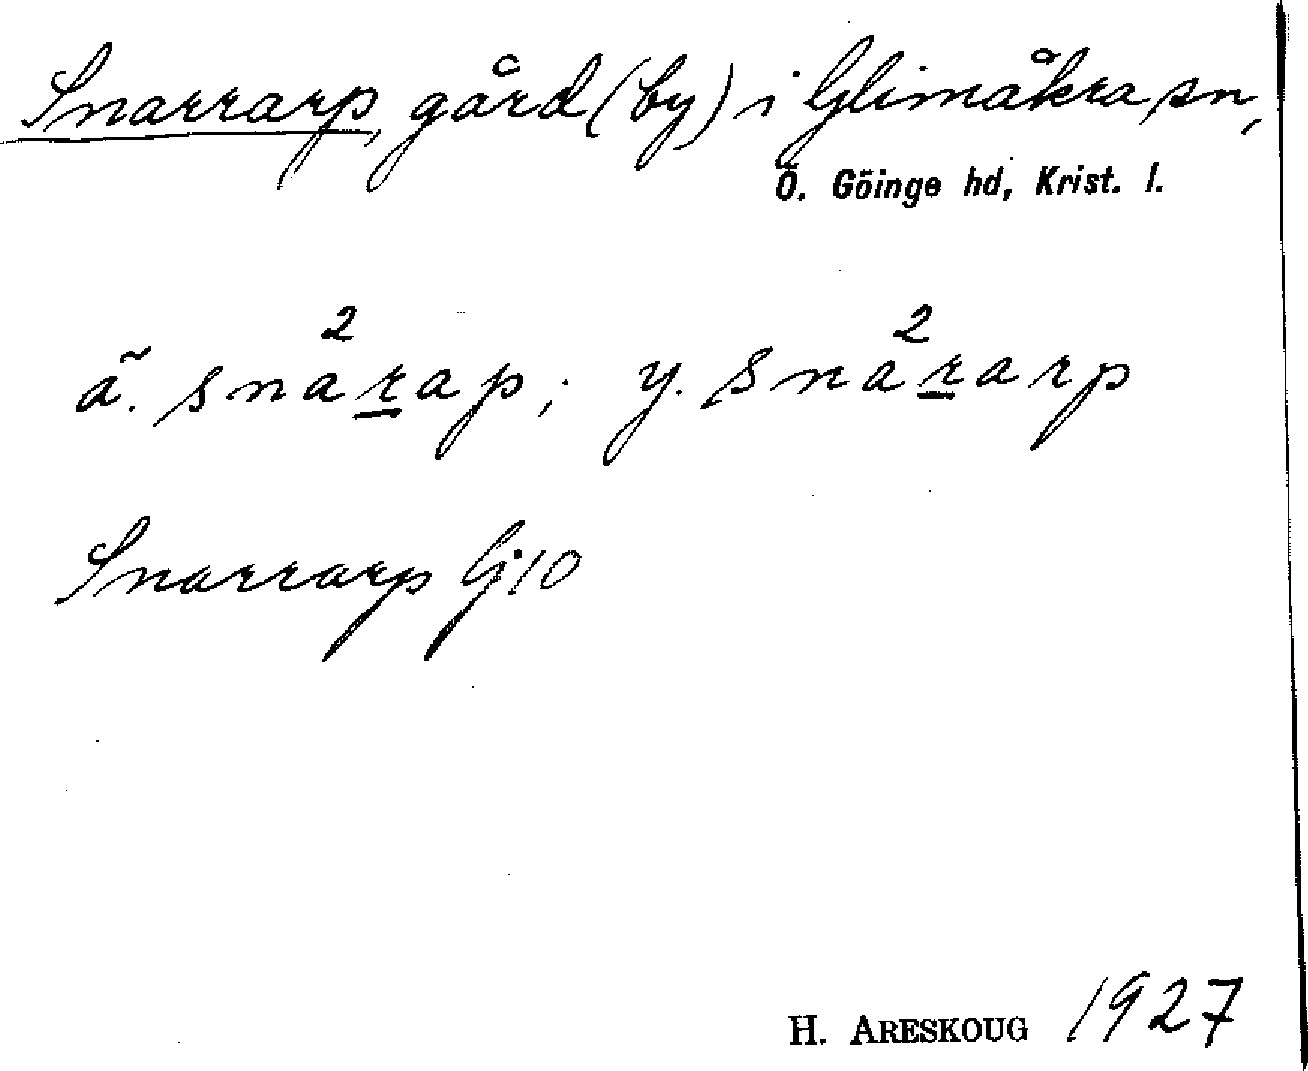 Snarrarp, gård (by) i Glimåkra sn,
Ö. Göinge hd, Krist. l.
ä. sna²rap; y. sna²rarp
Snarrarp Gj10
H. ARESKOUG 1927